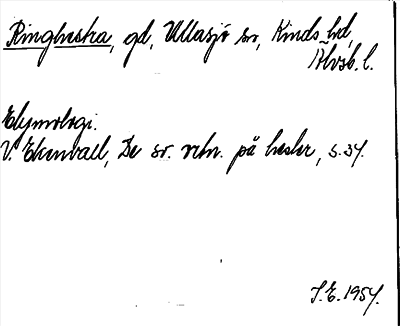 Ringhestra, gd, Ullasjö sn, Kinds hd,
Älvsb. l.
Etymologi.
V. Ekenvall, De sv. ortn. på hester, s. 34.
S.E. 1954.